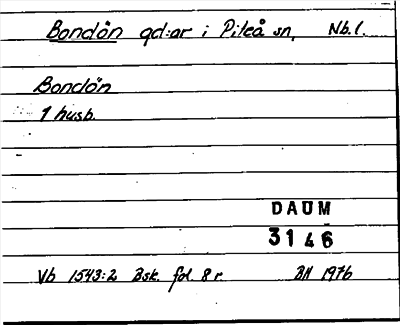 Bondön gd:ar i Piteå sn, Nb.l.
Bondön
1 husb.
DAUM
3146
Vb 1543:2 Bsk. fol. 8 r. BH 1976